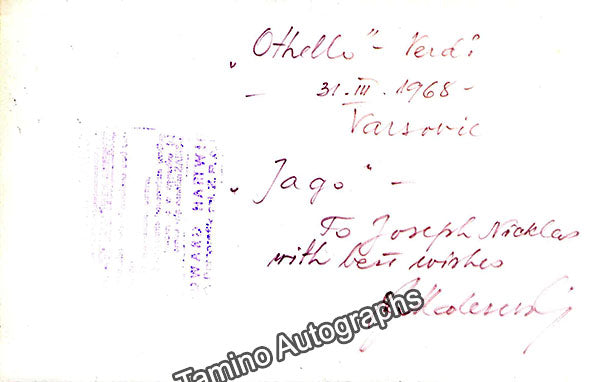 „Othello" - Verdi
- 31.III.1968 -
Varsovie
„Jago" -
To Joseph Nicklas
with best wishes
Tamino Autographs